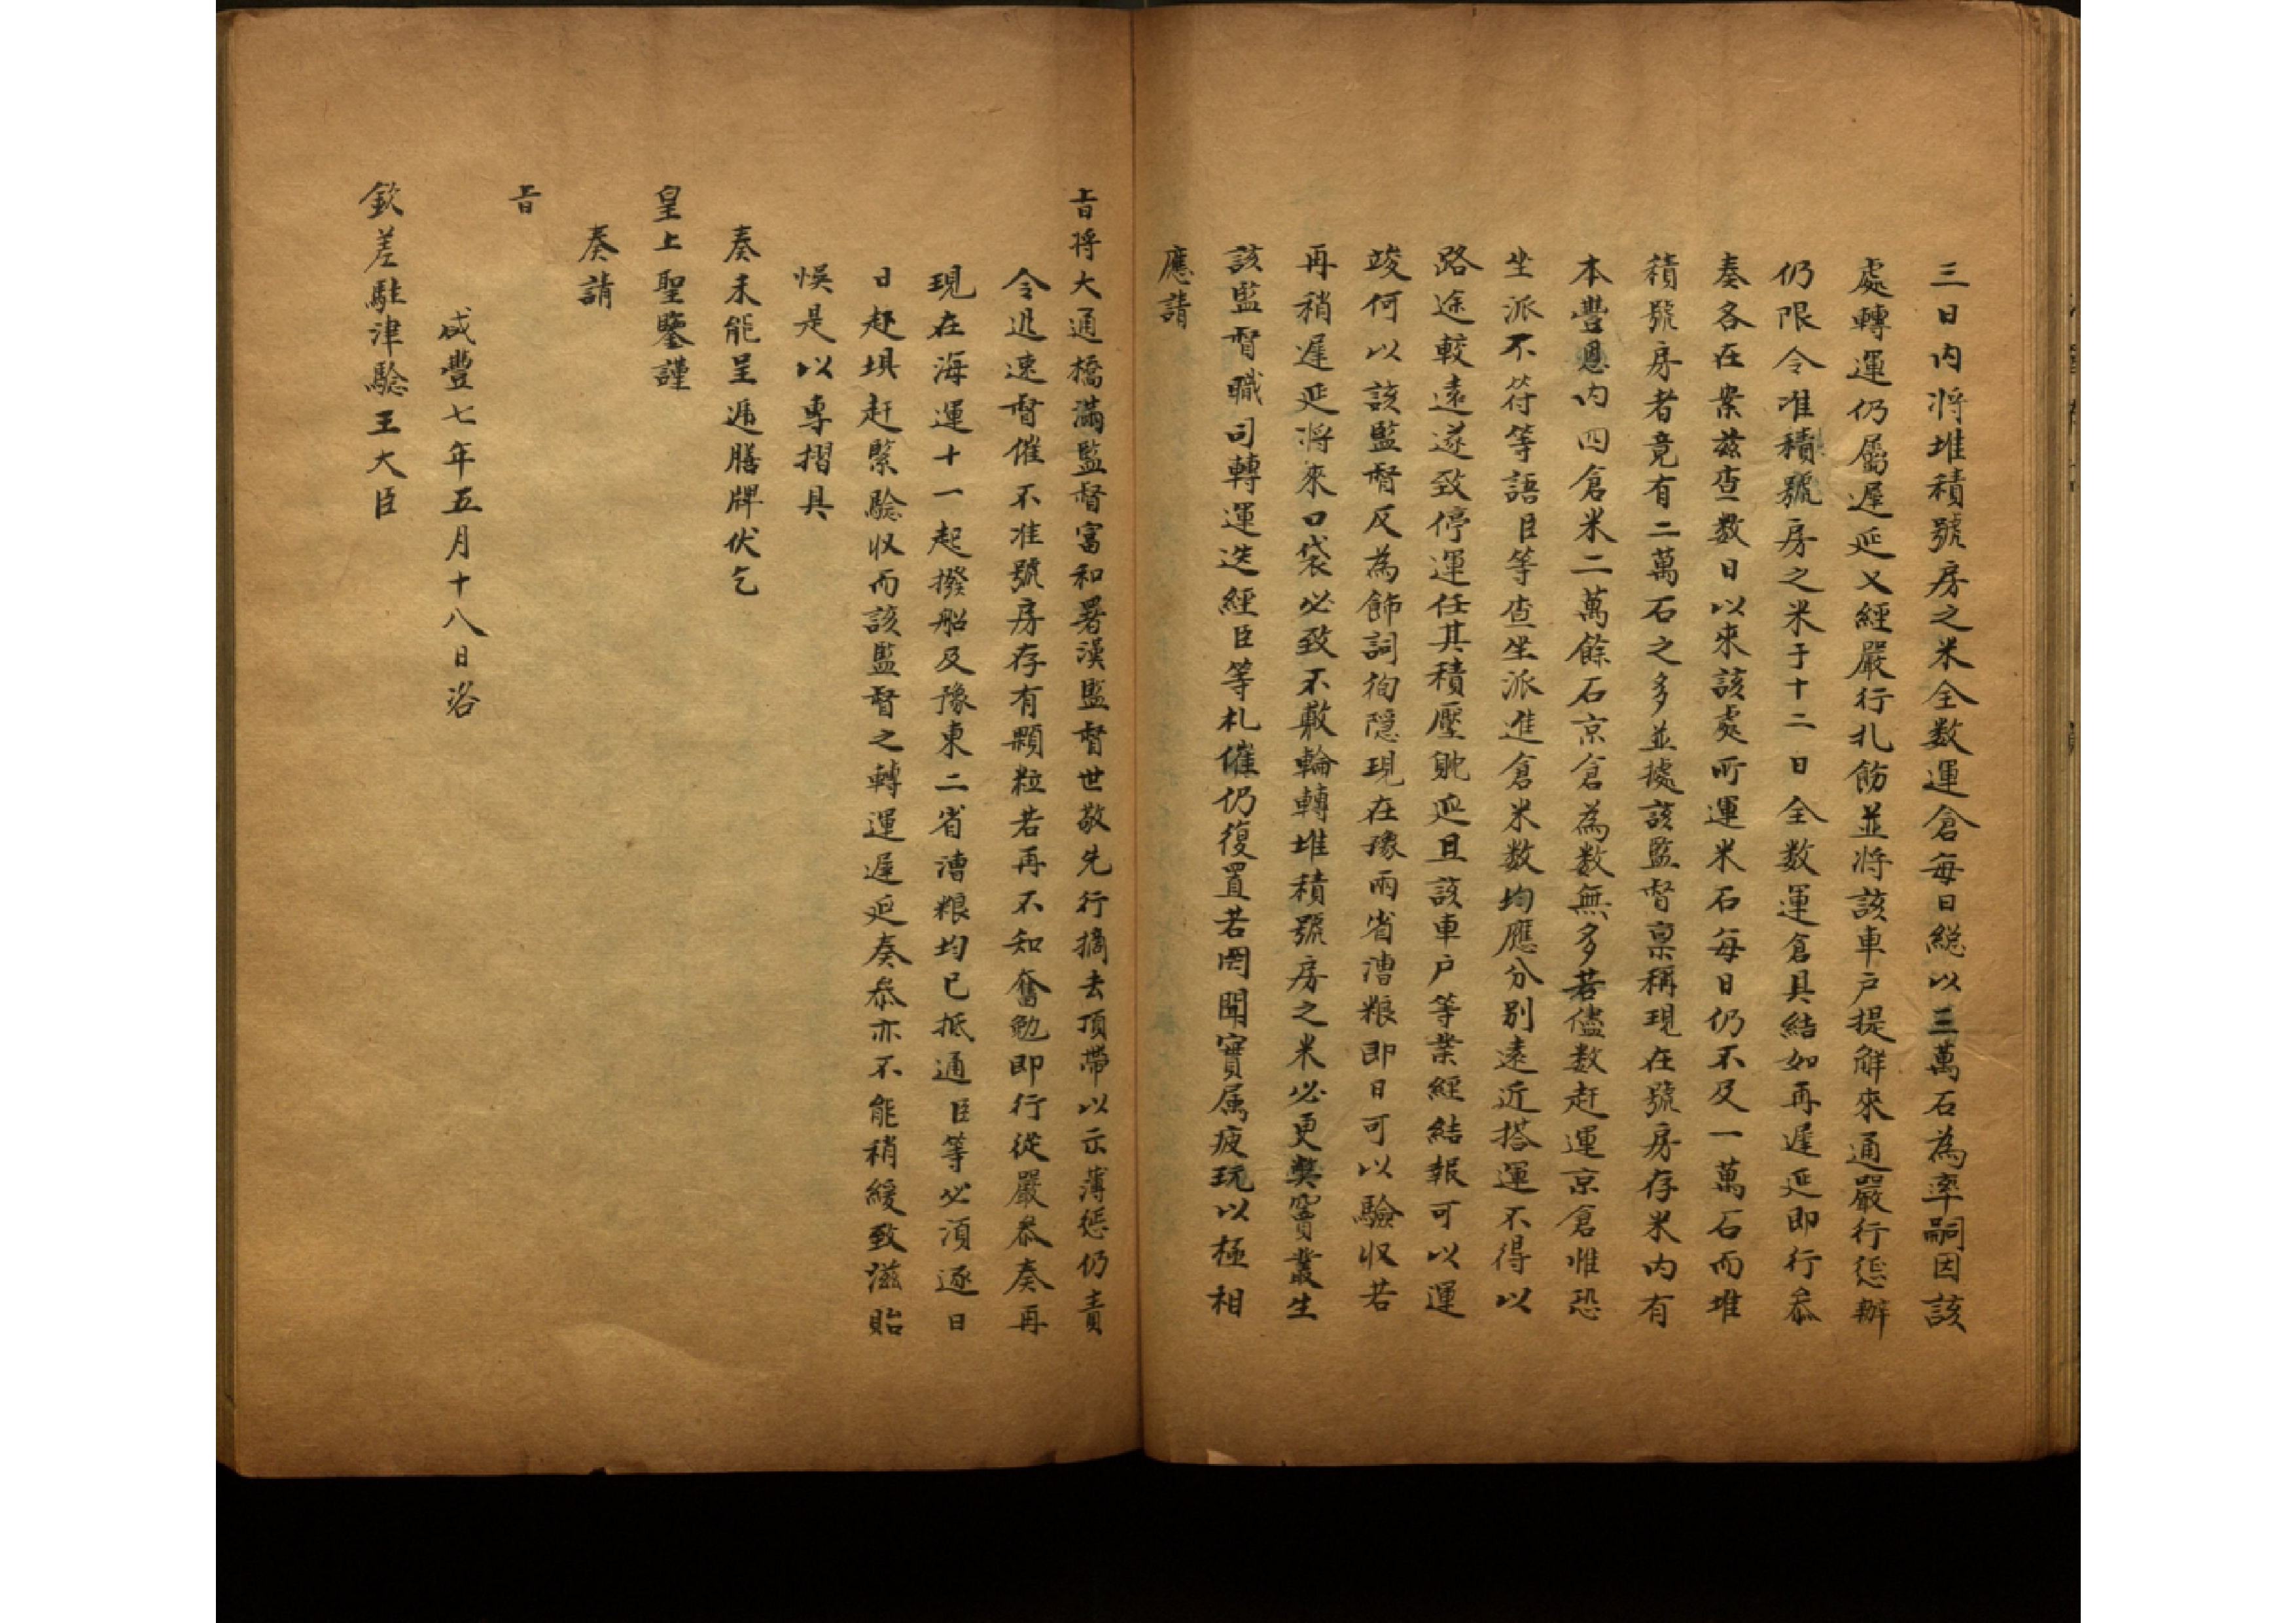 三日内将堆積號房之米全数運倉每日総以三萬石為率嗣因該
處轉運仍屬遲延又經嚴行札飭並将該車户提解來通嚴行懲辦
仍限令准積號房之米于十二日全数運倉具結如再遲延即行叅
奏各在案兹查数日以來該處所運米石每日仍不及一萬石而堆
積號房者竟有二萬石之多並據該監督禀稱現在號房存米内有
本豐恩内四倉米二萬餘石京倉為数無多若儘数赶運京倉惟恐
坐派不符等語臣等查坐派進倉米数均應分别遠近搭運不得以
路途較遠遂致停運任其積壓躭延且該車户等業經結報可以運
竣何以該監督反為飾詞徇隱現在豫兩省漕粮即日可以驗収若
再稍遲延将來口袋必致不敷輪轉堆積號房之米必更獘竇叢生
該監督職司轉運迭經臣等札催仍復置若罔聞實属疲玩以極相
應請
旨将大通橋滿監督富和署漢監督世敬先行摘去頂帶以示薄懲仍責
令迅速督催不准號房存有顆粒若再不知奮勉即行從嚴叅奏再
現在海運十一起撥船及豫東二省漕粮均已抵通臣等必須逐日
日起垻赶緊驗収而該監督之轉運遲延奏叅亦不能稍緩致滋貽
悮是以專摺具
奏未能呈遞膳牌伏乞
皇上聖鑒謹
奏請
旨
咸豐七年五月十八日咨
欽差駐津驗王大臣